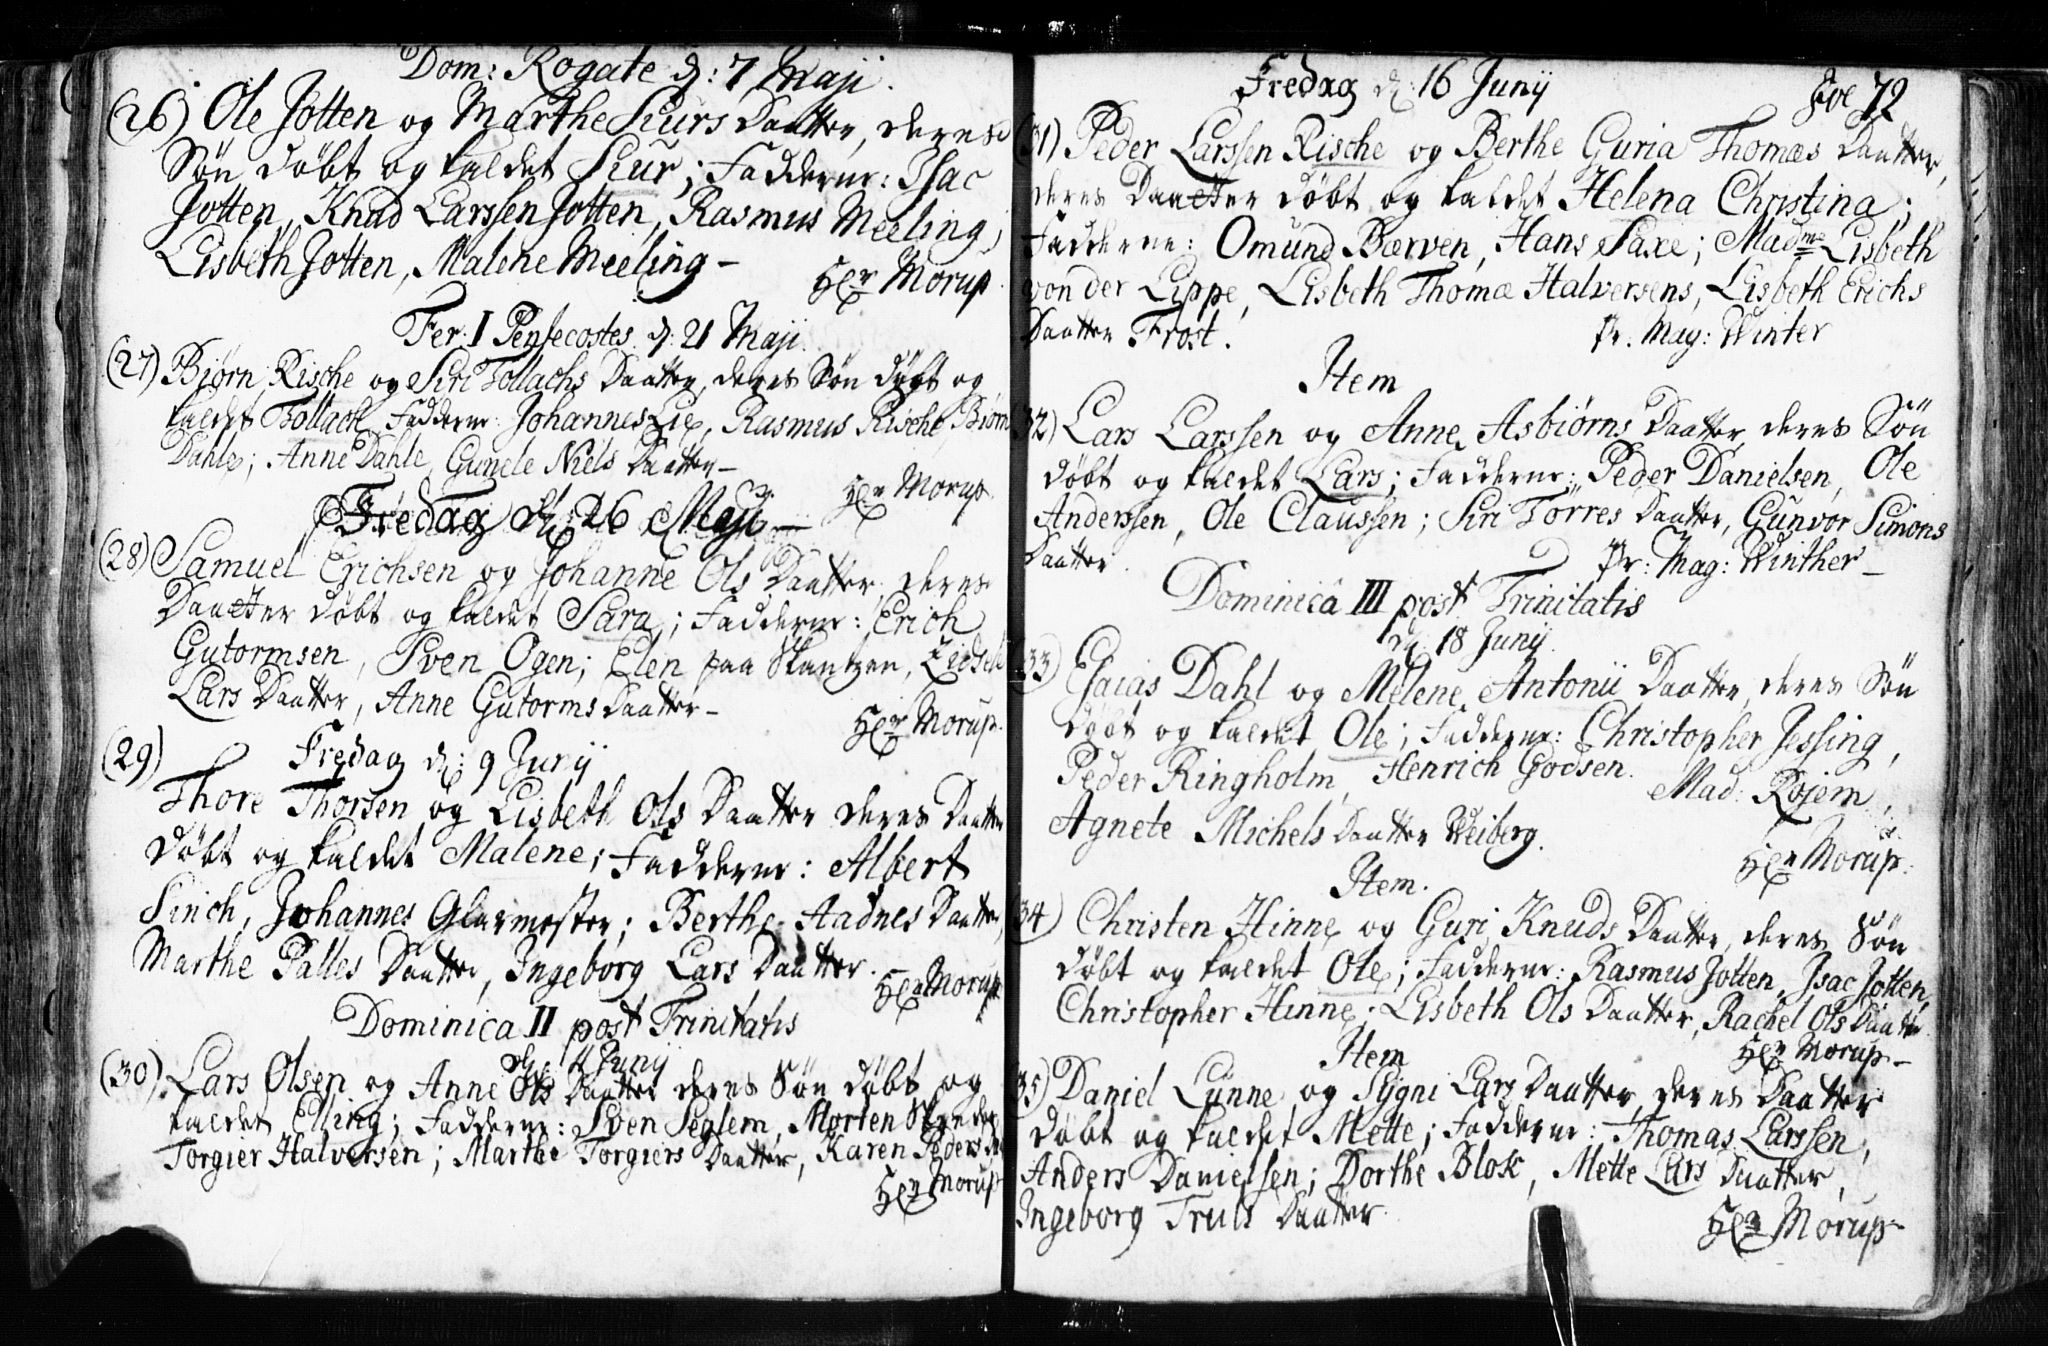 Dom: Rogate d: 7 Maji.
(26) Ole Jotten og Marthe Siurs Daatter, deres
Søn døbt og kaldet Siur; Fadderne: Isac
Jotten, Knud Larssen Jotten, Rasmus Meeling;
Lisbeth Jotten, Malene Meeling –
Hr Morup.
Fer: I Pentecostes d: 21 Maji.
(27) Biørn Rische og Siri Tollachs Daatter, deres Søn døbt og
kaldet Tollach, Fadderne: Johannes Lie, Rasmus Rische, Biørn
Dahle; Anne Dahle, Gunele Niels Daatter –
Hr Morup.
Fredag d: 26 Maji –
(28) Samuel Erichsen og Johanne Ols Daatter, deres
Daatter døbt og kaldet Sara; Fadderne: Erich
Gutormsen, Sven Ogen; Elen paa Skantzen,
Lars Daatter, Anne Gutorms Daatter –
Hr Morup.
(29)
Fredag d: 9 Junij
Thore Thorsen og Lisbeth Ols Daatter deres Daatter
døbt og kaldet Malene; Fadderne: Albert
Sinch, Johannes Glarmester; Berthe Aadnes Daatter,
Marthe Palles Daatter, Ingeborg Lars Daatter.
Hr Morup
Dominica II post Trinitatis
Junij
(30) Lars Olsen og Anne Ols Daatter deres Søn døbt og
kaldet Elling; Fadderne: Sven Seglem, Morten
Torgier Halversen; Marthe Torgiers Daatter, Karen Peders
Hr Morup
Fredag d: 16 Junij
Fol 72
31) Peder Larssen Rische og Berthe Guria Thomæs Daatter,
deres Daatter døbt og kaldet Helena Christina;
Fadderne: Omund Bærven, Hans Saxe; Madme Lisbeth
von der Lippe, Lisbeth Thomæ Halversens, Lisbeth Erichs
Daatter Frost.
Pr. Mag: Winter
Item
32) Lars Larssen og Anne Asbiørns Daatter, deres Søn
døbt og kaldet Lars; Fadderne: Peder Danielsen, Ole
Anderssen, Ole Claussen; Siri Törres Daatter, Gunvor Simons
Daatter.
Pr: Mag: Winther –
Dominica III post Trinitatis
d: 18 Junij.
33) Esaias Dahl og Melene Antonii Daatter, deres Søn
døbt og kaldet Ole; Fadderne: Christopher Jessing,
Peder Ringholm, Henrich Godsen. Mad: Rojem,
Agnete Michels Daatter Weiberg.
Hr Morup.
Item.
34) Christen Hinne og Guri Knuds Daatter, deres Søn
døbt og kaldet Ole; Fadderne: Rasmus Jotten, Isac Jotten,
Christopher Hinne; Lisbeth Ols Daatter, Rachel Ols Daatter
Hr Morup –
Item
35) Daniel Lünne og Sygni Lars Daatter, deres Daatter
døbt og kaldet Mette; Fadderne: Thomas Larssen,
Anders Danielsen; Dorthe Blok, Mette Lars Daatter,
Ingeborg Truls Daatter.
Hr Morup –